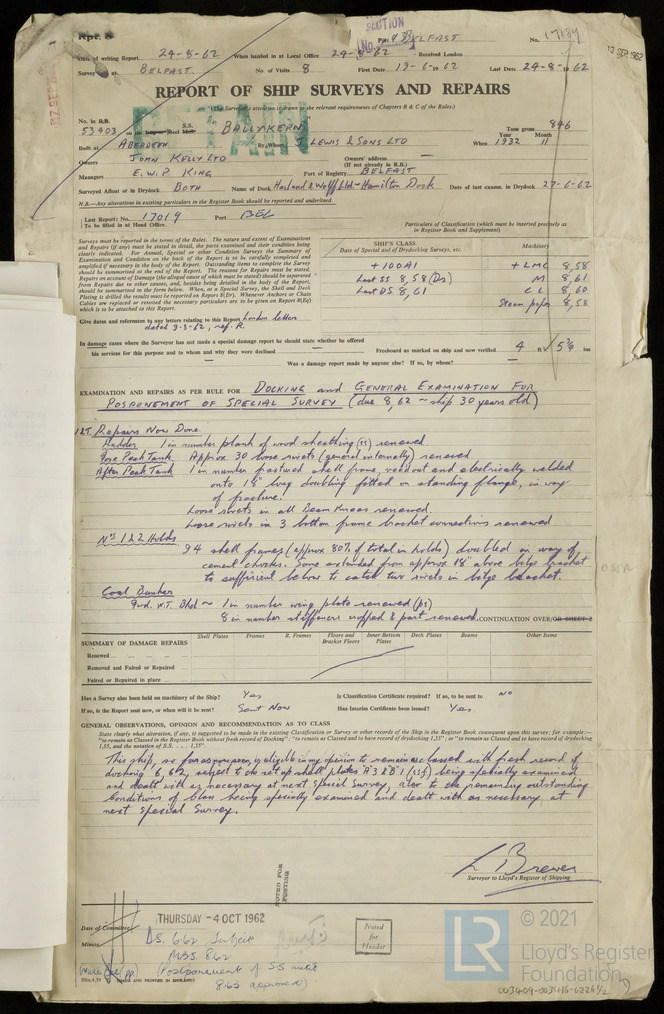 Rpt. 8
SECTION
Port BELFAST No. 17184
13 SEP 1962
Date of writing Report 24-8-62 When handed in at Local Office 24-8-62 Received London
Survey BELFAST No. of Visits 8 First Date 19-6-1962 Last Date 24-8-1962
REPORT OF SHIP SURVEYS AND REPAIRS
(The Surveyor's attention is drawn to the relevant requirements of Chapters B & C of the Rules.)
No. in R.B. 53903 S.S. BALLYKERN Tons gross 846
Built at ABERDEEN By Whom J. LEWIS & SONS LTD When Year 1932 Month 11
Owners JOHN KELLY LTD Owners' address (If not already in R.B.) —
Managers E. W. P. KING Port of Registry BELFAST
Surveyed Afloat or in Drydock BOTH Name of Dock Harland & Wolff Ltd - Hamilton Dock Date of last exam. in Drydock 27-6-62
N.B.—Any alterations in existing particulars in the Register Book should be reported and underlined.
Last Report: No. 17019 Port BEL
To be filled in at Head Office
Particulars of Classification (which must be inserted precisely as in Register Book and Supplement)
Surveys must be reported in the terms of the Rules. The nature and extent of Examinations
and Repairs (if any) must be stated in detail, the parts examined and their condition being
clearly indicated. For Annual, Special or other Conditions Surveys the Summary of
Examination and Condition on the back of the Report is to be carefully completed and
amplified if necessary in the body of the Report. Outstanding items to complete the Survey
should be summarised at the end of the Report. The reasons for Repairs must be stated.
Repairs on account of Damage (the alleged cause of which must be stated) should be separated
from Repairs due to other causes, and, besides being detailed in the body of the Report,
should be summarised in the form below. When, at a Special Survey, the Shell and Deck
Plating is drilled the results must be reported on Report 8(Dr). Whenever Anchors or Chain
Cables are replaced or retested the necessary particulars are to be given on Report 8(Eq)
which is to be attached to this Report.
SHIP'S CLASS Machinery
Date of Special and of Drydocking Surveys, etc.
+100A1 +LMC 8,58
Last SS 8,58 (Ds) M 8,61
Last DS 8,61 CL 8,60
Steam pipes 8,58
Give dates and references to any letters relating to this Report London letter
dated 9-3-62, ref. R.
In damage cases where the Surveyor has not made a special damage report he should state whether he offered
his services for this purpose and to whom and why they were declined — Freeboard as marked on ship and now verified 4 ft 5¾ ins
Was a damage report made by anyone else? If so, by whom? —
EXAMINATION AND REPAIRS AS PER RULE FOR DOCKING and GENERAL EXAMINATION FOR
POSPONEMENT OF SPECIAL SURVEY (due 8,62 ~ ship 30 years old)
Repairs Now Done
Rudder 1 in number plank of wood sheathing (ss) renewed
Fore Peak Tank Approx. 30 loose rivets (general internally) renewed.
After Peak Tank 1 in number fractured shell frame, veed out and electrically welded
onto 18" long doubling fitted on standing flange, in way
of fracture.
Loose rivets in all Beam Knees renewed.
Loose rivets in 3 bottom frame bracket connections renewed
Nos 1 & 2 Holds 94 shell frames (approx 80% of total in holds) doubled in way of
cement chocks. Some extended from approx 18" above bilge bracket
to sufficient below to catch two rivets in bilge bracket.
Coal Bunker
Fwd. W.T. Bhd ~ 1 in number wing plate renewed (ps)
8 in number stiffeners cropped & part renewed. CONTINUATION OVER/OR SHEET 2
SUMMARY OF DAMAGE REPAIRS Shell Plates Frames R. Frames Floors and Bracket Floors Inner Bottom Plates Deck Plates Beams Other Items
Renewed
Removed and Faired or Repaired
Faired or Repaired in place
Has a Survey also been held on machinery of the Ship? Yes Is Classification Certificate required? If so, to be sent to NO
If so, is the Report sent now, or when will it be sent? Sent Now Has Interim Certificate been issued? Yes
GENERAL OBSERVATIONS, OPINION AND RECOMMENDATION AS TO CLASS
State clearly what alteration, if any, is suggested to be made in the existing Classification or Survey or other records of the Ship in the Register Book consequent upon this survey; for example:—
"to remain as Classed in the Register Book without fresh record of Docking"; "to remain as Classed and to have record of drydocking 1,55"; or "to remain as Classed and to have record of drydocking
1,55, and the notation of S.S. . . . 1,55".
This ship, so far as now seen, is eligible in my opinion to remain as classed with fresh record of
docking 6,62, subject to the set up shell plates A'3 & B'1 (ssf) being specially examined
and dealt with as necessary at next Special Survey, also to the remaining outstanding
Conditions of Class being specially examined and dealt with as necessary at
next Special Survey.
L Brewer
Surveyor to Lloyd's Register of Shipping
NOTED FOR POSTING
Date of Committee THURSDAY - 4 OCT 1962
Minute DS. 6.62 Subject
MBS 8.62
(Postponement of SS until
8.63 approved)
Noted
for
Header
(MADE AND PRINTED IN ENGLAND)
LR © 2021
Lloyd's Register
Foundation
003409-003416-0226 1/2